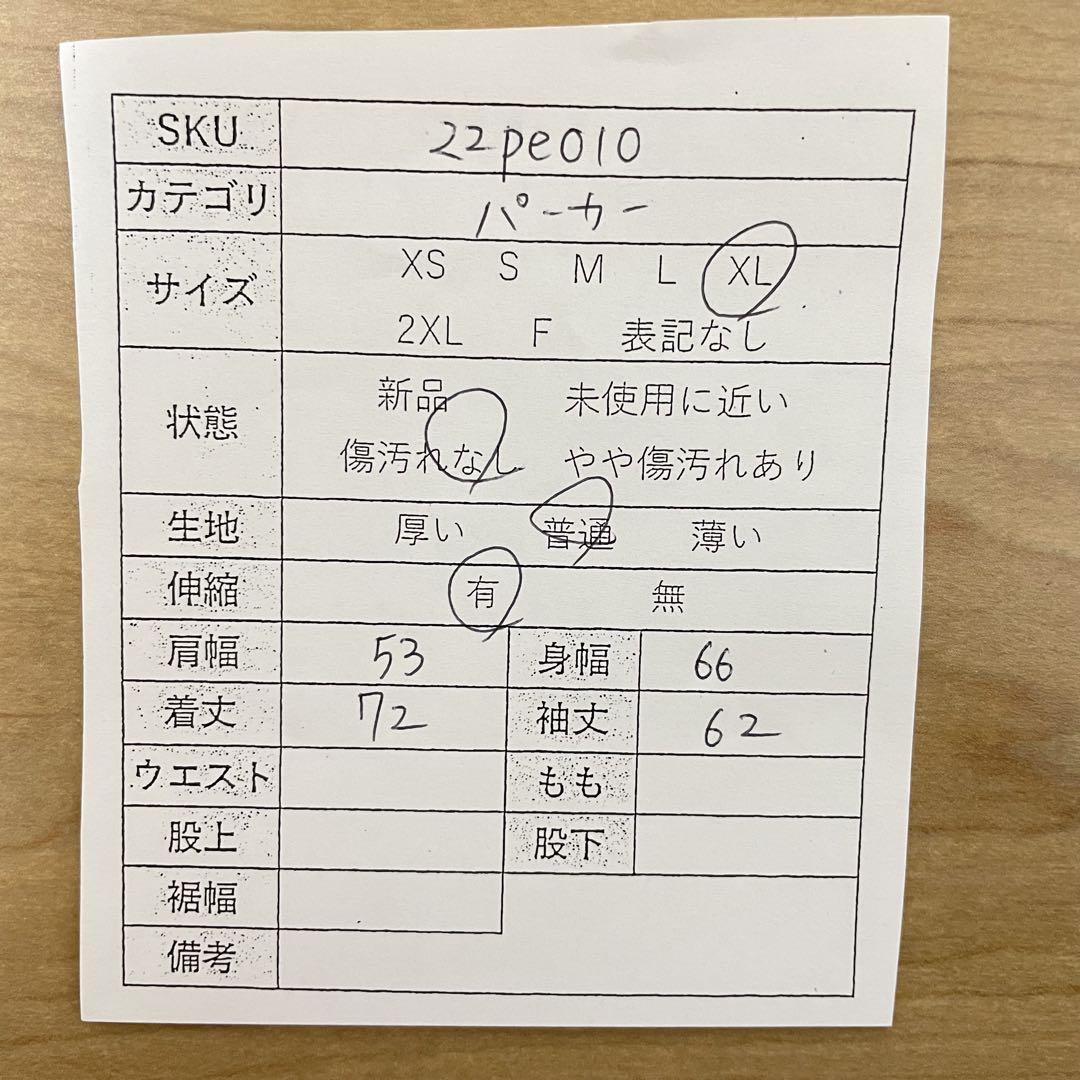 SKU 22pe010
カテゴリ パーカー
サイズ XS S M L XL
2XL F 表記なし
状態 新品 未使用に近い
傷汚れなし やや傷汚れあり
生地 厚い 普通 薄い
伸縮 有 無
肩幅 53 身幅 66
着丈 72 袖丈 62
ウエスト もも
股上 股下
裾幅
備考